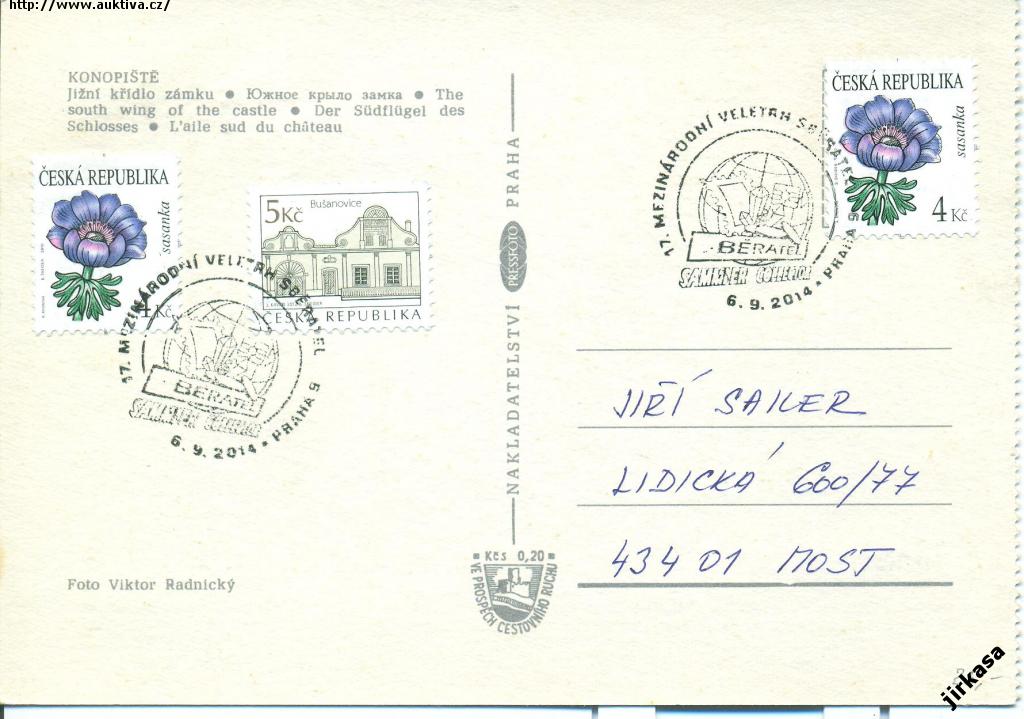 http://www.auktiva.cz/
KONOPIŠTĚ
Jižní křídlo zámku ● Южное крыло замка ● The
south wing of the castle ● Der Südflügel des
Schlosses ● L'aile sud du château
ČESKÁ REPUBLIKA
sasanka
4 Kč
5Kč
Bušanovice
ČESKÁ REPUBLIKA
17. MEZINÁRODNÍ VELETRH SBĚRATEL
BĚRATEL
SAMMLER COLLECTOR
6.9.2014 • PRAHA 9
Foto Viktor Radnický
NAKLADATELSTVÍ PRESSFOTO PRAHA
■ Kčs 0,20 ■
VE PROSPĚCH CESTOVNÍHO RUCHU
ČESKÁ REPUBLIKA
sasanka
4 Kč
17. MEZINÁRODNÍ VELETRH SBĚRATEL
BĚRATEL
SAMMLER COLLECTOR
6.9.2014 • PRAHA 9
JIŘÍ SAILER
LIDICKÁ 600/77
434 01 MOST
jirkasa